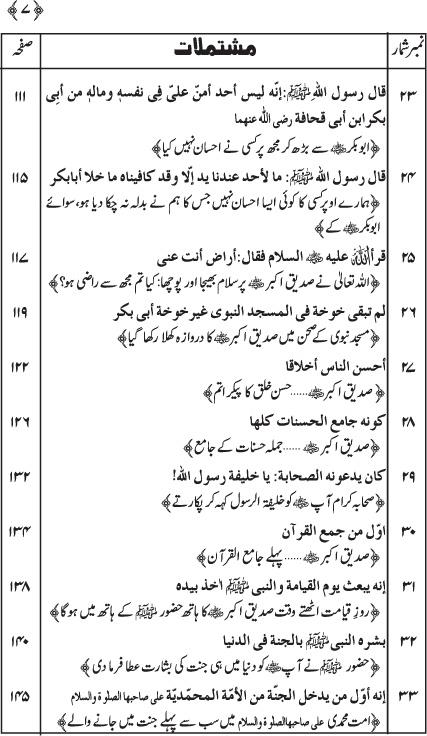 ﴿۷﴾
نمبر شمار مشتملات صفحہ
۲۳ قال رسول اللهﷺ:إنّه ليس أحد أمنّ علیّ فی نفسه وماله من أبی ۱۱۱
بكر ابن أبی قحافة رضی اللہ عنهما
﴿ابوبکرؓ سے بڑھ کر مجھ پر کسی نے احسان نہیں کیا﴾
۲۴ قال رسول اللهﷺ: ما لأحد عندنا يد إلّا وقد كافيناه ما خلا أبابكر ۱۱۵
﴿ہمارے اوپر کسی کا کوئی ایسا احسان نہیں جس کا ہم نے بدلہ نہ چکا دیا ہو، سوائے
ابوبکرؓ کے﴾
۲۵ قرأ الله عليه ؓ السلام فقال:أراض أنت عنی ۱۱۷
﴿اللہ تعالیٰ نے صدیق اکبرؓ پر سلام بھیجا اور پوچھا: کیا تم مجھ سے راضی ہو؟﴾
۲۶ لم تبقی خوخة فی المسجد النبوی غیر خوخة أبی بكر ۱۱۹
﴿مسجد نبوی کے صحن میں صدیق اکبرؓ کا دروازہ کھلا رکھا گیا﴾
۲۷ أحسن الناس أخلاقا ۱۲۲
﴿صدیق اکبرؓ......حسن خلق کا پیکر اتم﴾
۲۸ كونه جامع الحسنات كلها ۱۲۶
﴿صدیق اکبرؓ...... جملہ حسنات کے جامع﴾
۲۹ كان يدعونه الصحابة: يا خليفة رسول الله! ۱۳۲
﴿صحابہ کرام آپؓ کو خلیفۃ الرسول کہہ کر پکارتے﴾
۳۰ أوّل من جمع القرآن ۱۳۴
﴿صدیق اکبرؓ...... پہلے جامع القرآن﴾
۳۱ إنه يبعث يوم القيامة والنبیﷺ اٰخذ بيده ۱۳۸
﴿روزِ قیامت اٹھتے وقت صدیق اکبرؓ کا ہاتھ حضورﷺ کے ہاتھ میں ہو گا﴾
۳۲ بشره النبیﷺ بالجنة فی الدنيا ۱۴۰
﴿حضورﷺ نے آپؓ کو دنیا میں ہی جنت کی بشارت عطا فرما دی﴾
۳۳ إنه أوّل من يدخل الجنّة من الأمّة المحمّديّة علی صاحبها الصلوة والسلام ۱۴۵
﴿امت محمدی علی صاحبها الصلوة والسلام میں سب سے پہلے جنت میں جانے والے﴾